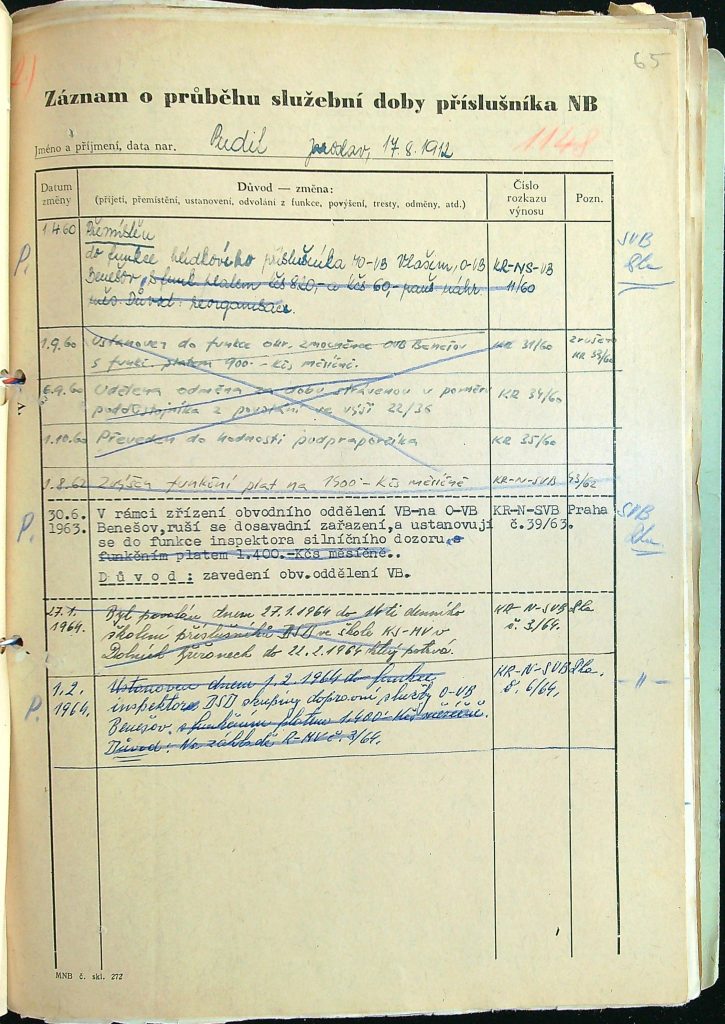 65
21
Záznam o průběhu služební doby příslušníka NB
Jméno a příjmení, data nar. Pudil Jaroslav, 17.8.1912 1148
Datum změny
Důvod — změna:
(přijetí, přemístění, ustanovení, odvolání z funkce, povýšení, tresty, odměny, atd.)
Číslo rozkazu výnosu
Pozn.
1.4.60 Přemístěn
P. do funkce hlídkového příslušníka OO-VB Vlašim, O-VB KR-NS-VB
Benešov, s funk. platem Kčs 820,- a Kčs 60,- pauš. náhr. 11/60
měs. Důvod: reorganisace.
SVB
1.9.60 Ustanoven do funkce okr. zmocněnce OVB Benešov KR 31/60 zrušeno
s funkč. platem 900.- Kčs měsíčně. KR 33/60
6.9.60 Udělena odměna za dobu strávenou v poměru KR 34/60
poddůstojníka z povolání ve výši 22/36
1.10.60 Převeden do hodnosti podpraporčíka KR 35/60
1.8.62 Zvýšen funkční plat na 1900.- Kčs měsíčně KR-N-SVB 43/62
30.6. V rámci zřízení obvodního oddělení VB-na O-VB KR-N-SVB Praha SVB
P. 1963. Benešov,ruší se dosavadní zařazení,a ustanovují č.39/63.
se do funkce inspektora silníčního dozoru,s
funkčním platem 1.400.-Kčs měsíčně..
D ů v o d : zavedení obv.oddělení VB.
27.1. Byl povolán dnem 27.1.1964 do denního KR-N-SVB
1964. školení příslušníků DSD ve škole KS-MV v č. 3/64.
Dolních Břežanech do 22.2.1964
1.2. Ustanoven dnem 1.2.1964 do funkce KR-N-SVB
P. 1964. inspektora DSD skupiny dopravní služby O-VB č. 6/64. -"-
Benešov, s funkčním platem 1.400.- Kčs měsíčně.
Důvod: Na základě R-MV č. 3/64.
MNB č. skl. 272